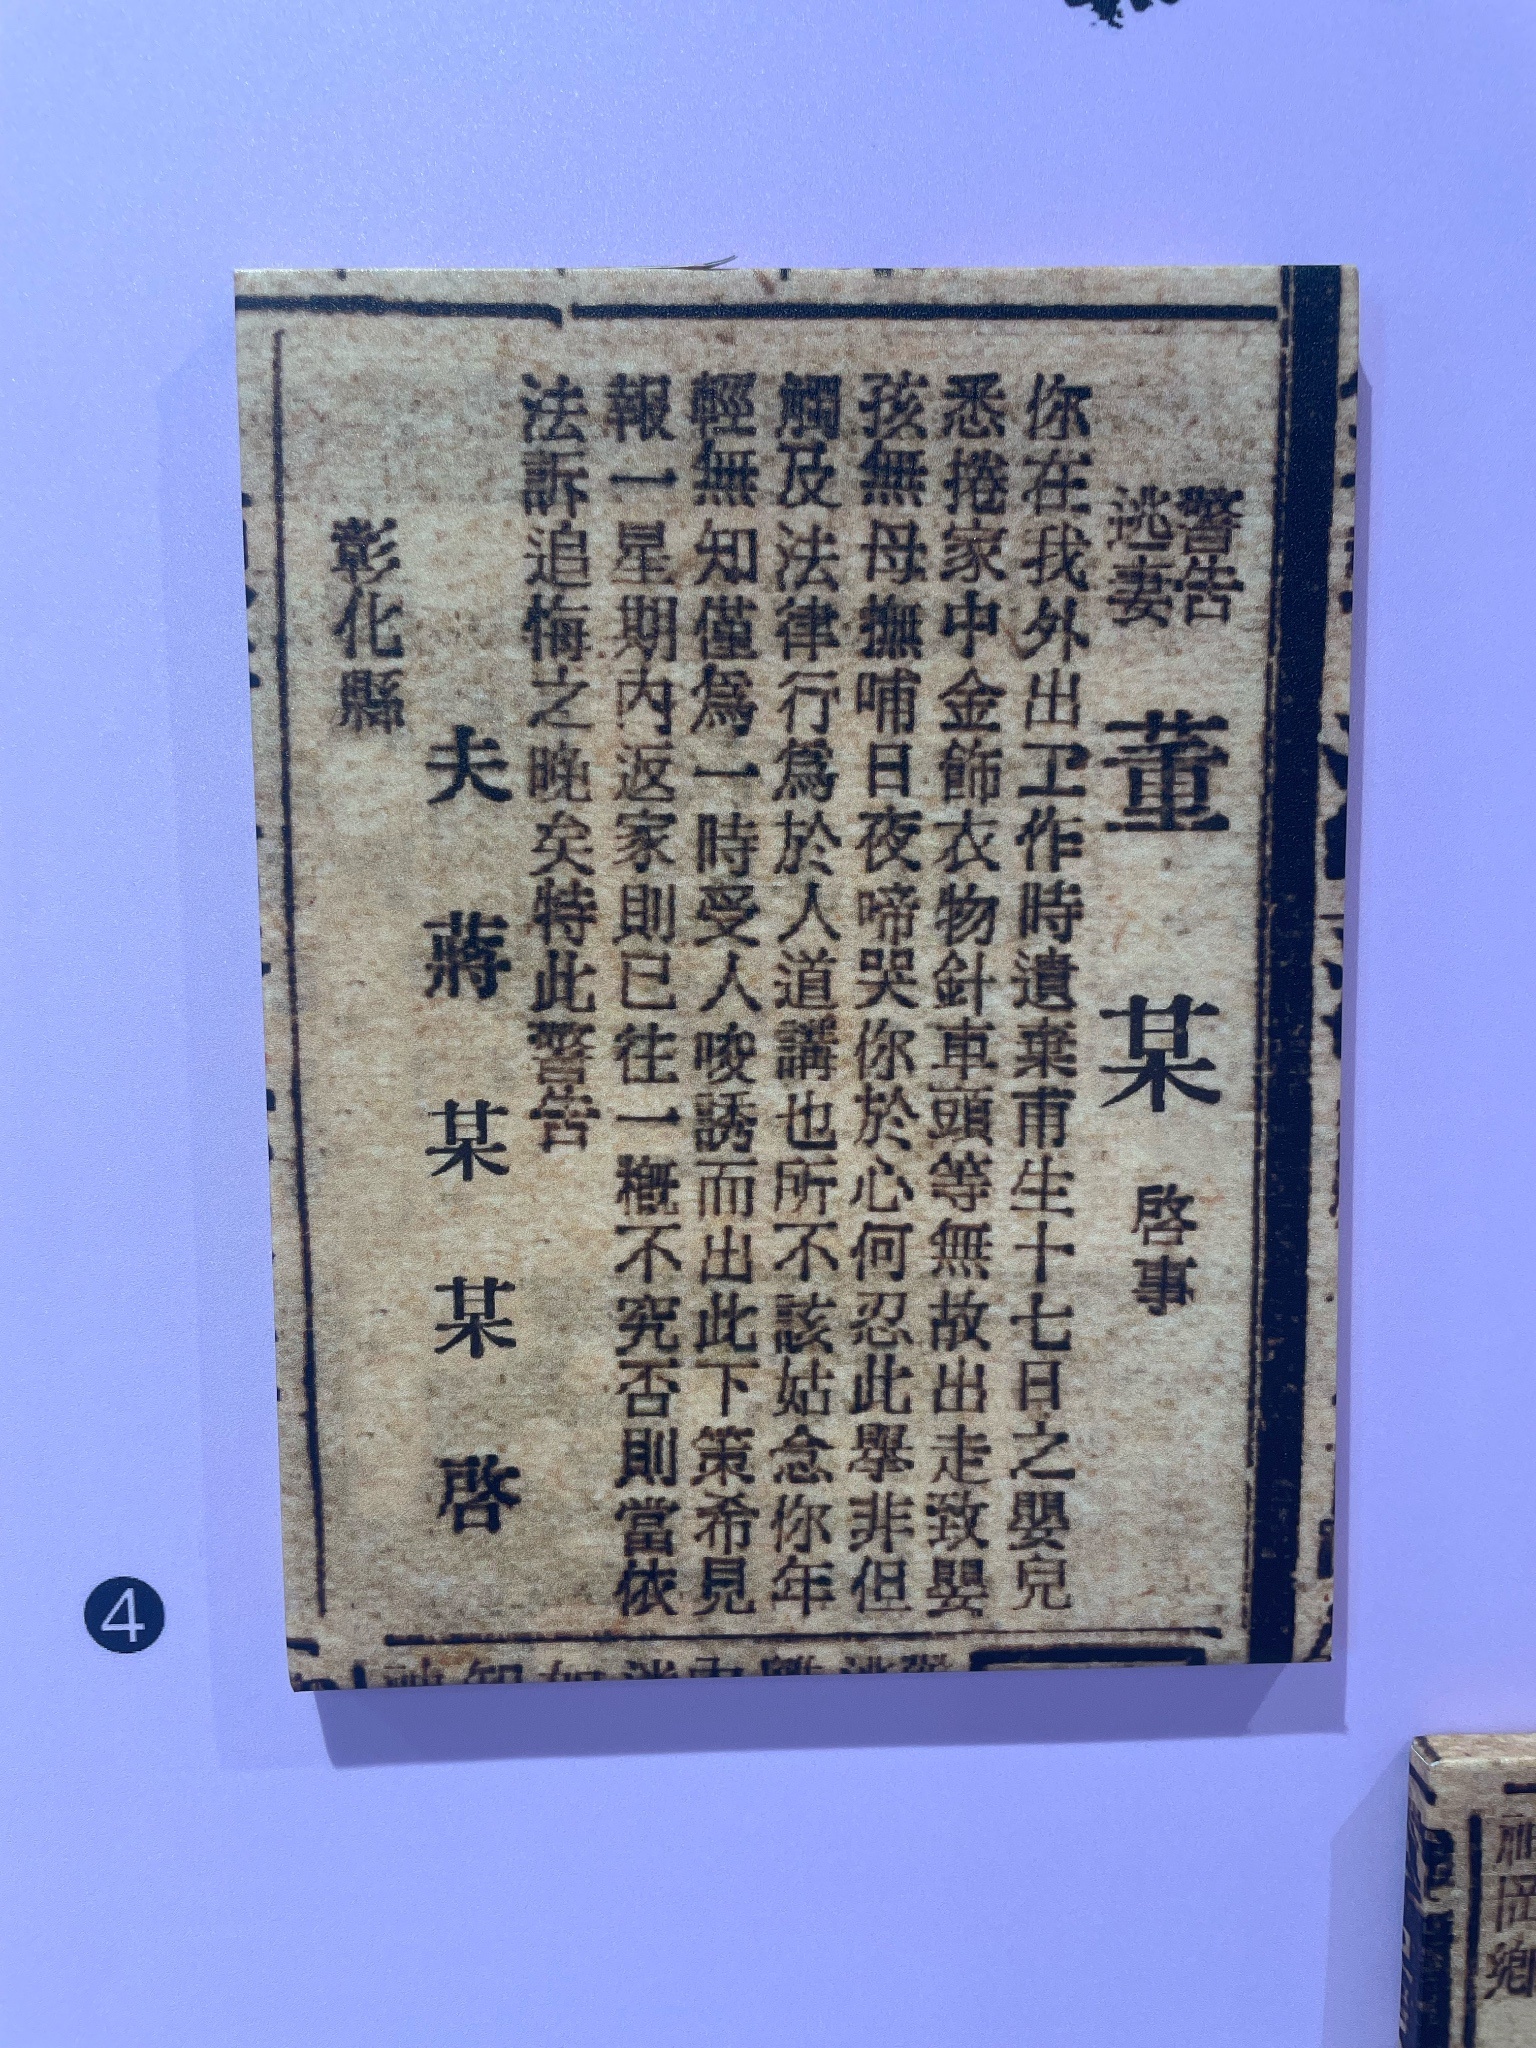 警告
逃妻
董某啓事
你在我外出工作時遺棄甫生十七日之嬰兒
悉捲家中金飾衣物針車頭等無故出走致嬰
孩無母撫哺日夜啼哭你於心何忍此舉非但
觸及法律行爲於人道講也所不該姑念你年
輕無知僅爲一時受人唆誘而出此下策希見
報一星期內返家則已往一概不究否則當依
法訴追悔之晚矣特此警告
夫蔣某某啓
彰化縣
4
神岡鄉